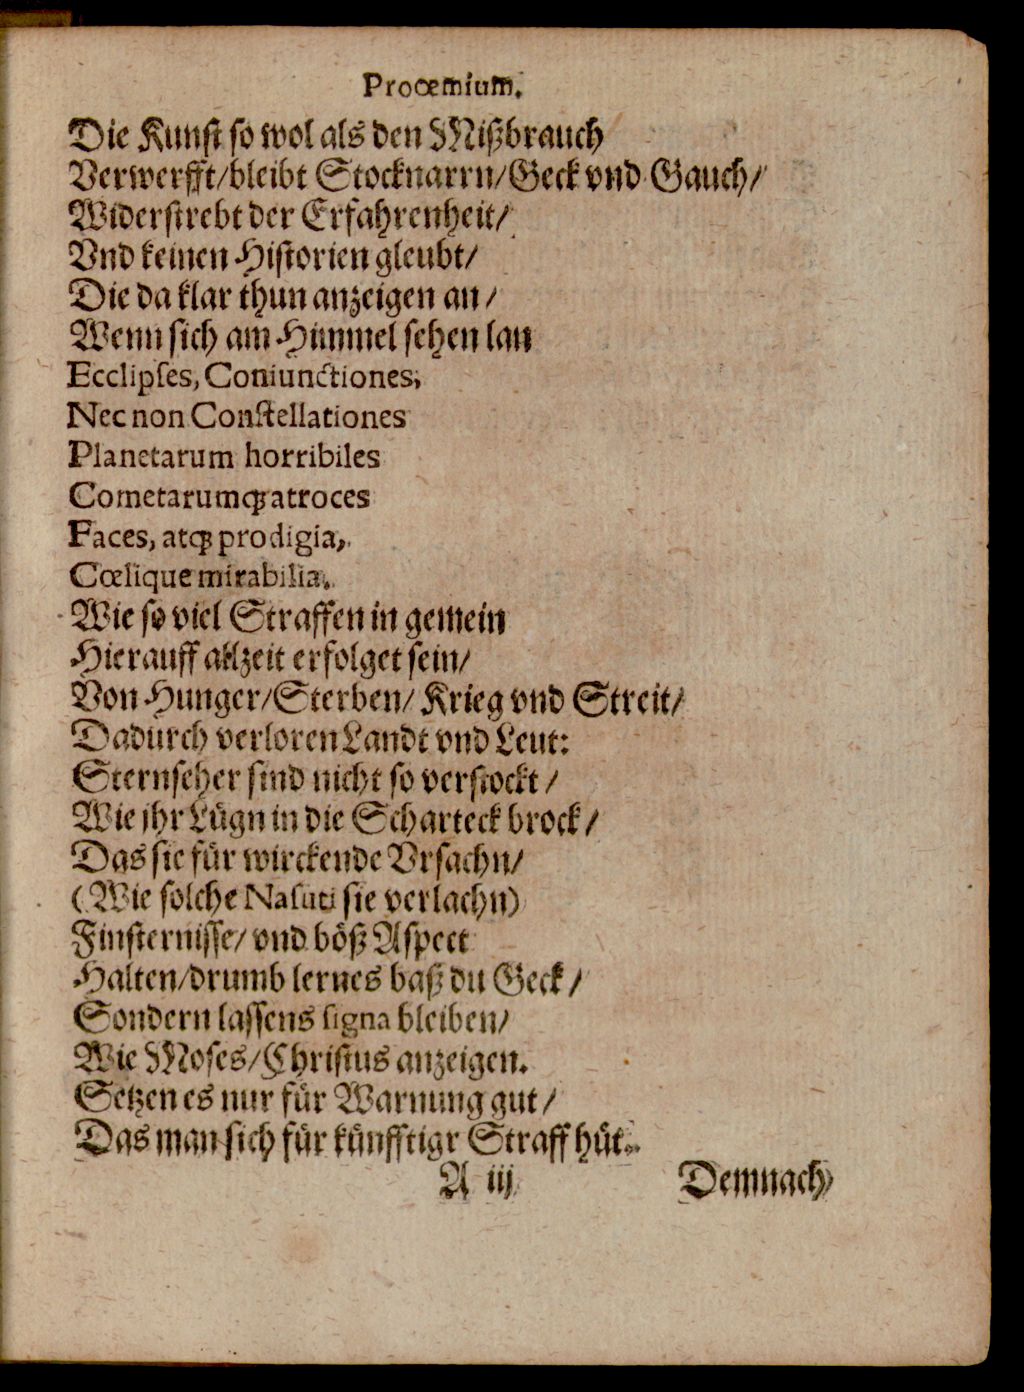 Proœmium.
Die Kunst so wol als den Mißbrauch
Verwerfft/bleibt Stocknarrn/Geck vnd Gauch/
Widerstrebt der Erfahrenheit/
Vnd keinen Historien gleubt/
Die da klar thun anzeigen an/
Wenn sich am Himmel sehen lan
Ecclipses, Coniunctiones,
Nec non Constellationes
Planetarum horribiles
Cometarumqꝫ atroces
Faces, atqꝫ prodigia,
Cœlique mirabilia.
Wie so viel Straffen in gemein
Hierauff allzeit erfolget sein/
Von Hunger/Sterben/ Krieg vnd Streit/
Dadurch verloren Landt vnd Leut:
Sternseher sind nicht so verstockt/
Wie jhr Lügn in die Scharteck brock/
Das sie für wirckende Vrsachn/
(Wie solche Nasuti sie verlachn)
Finsternisse/ vnd böß Aspect
Halten/drumb lernes baß du Geck/
Sondern lassens signa bleiben/
Wie Moses/Christus anzeigen.
Setzen es nur für Warnung gut/
Das man sich für künfftigr Straff hüt.
A iij
Demnach